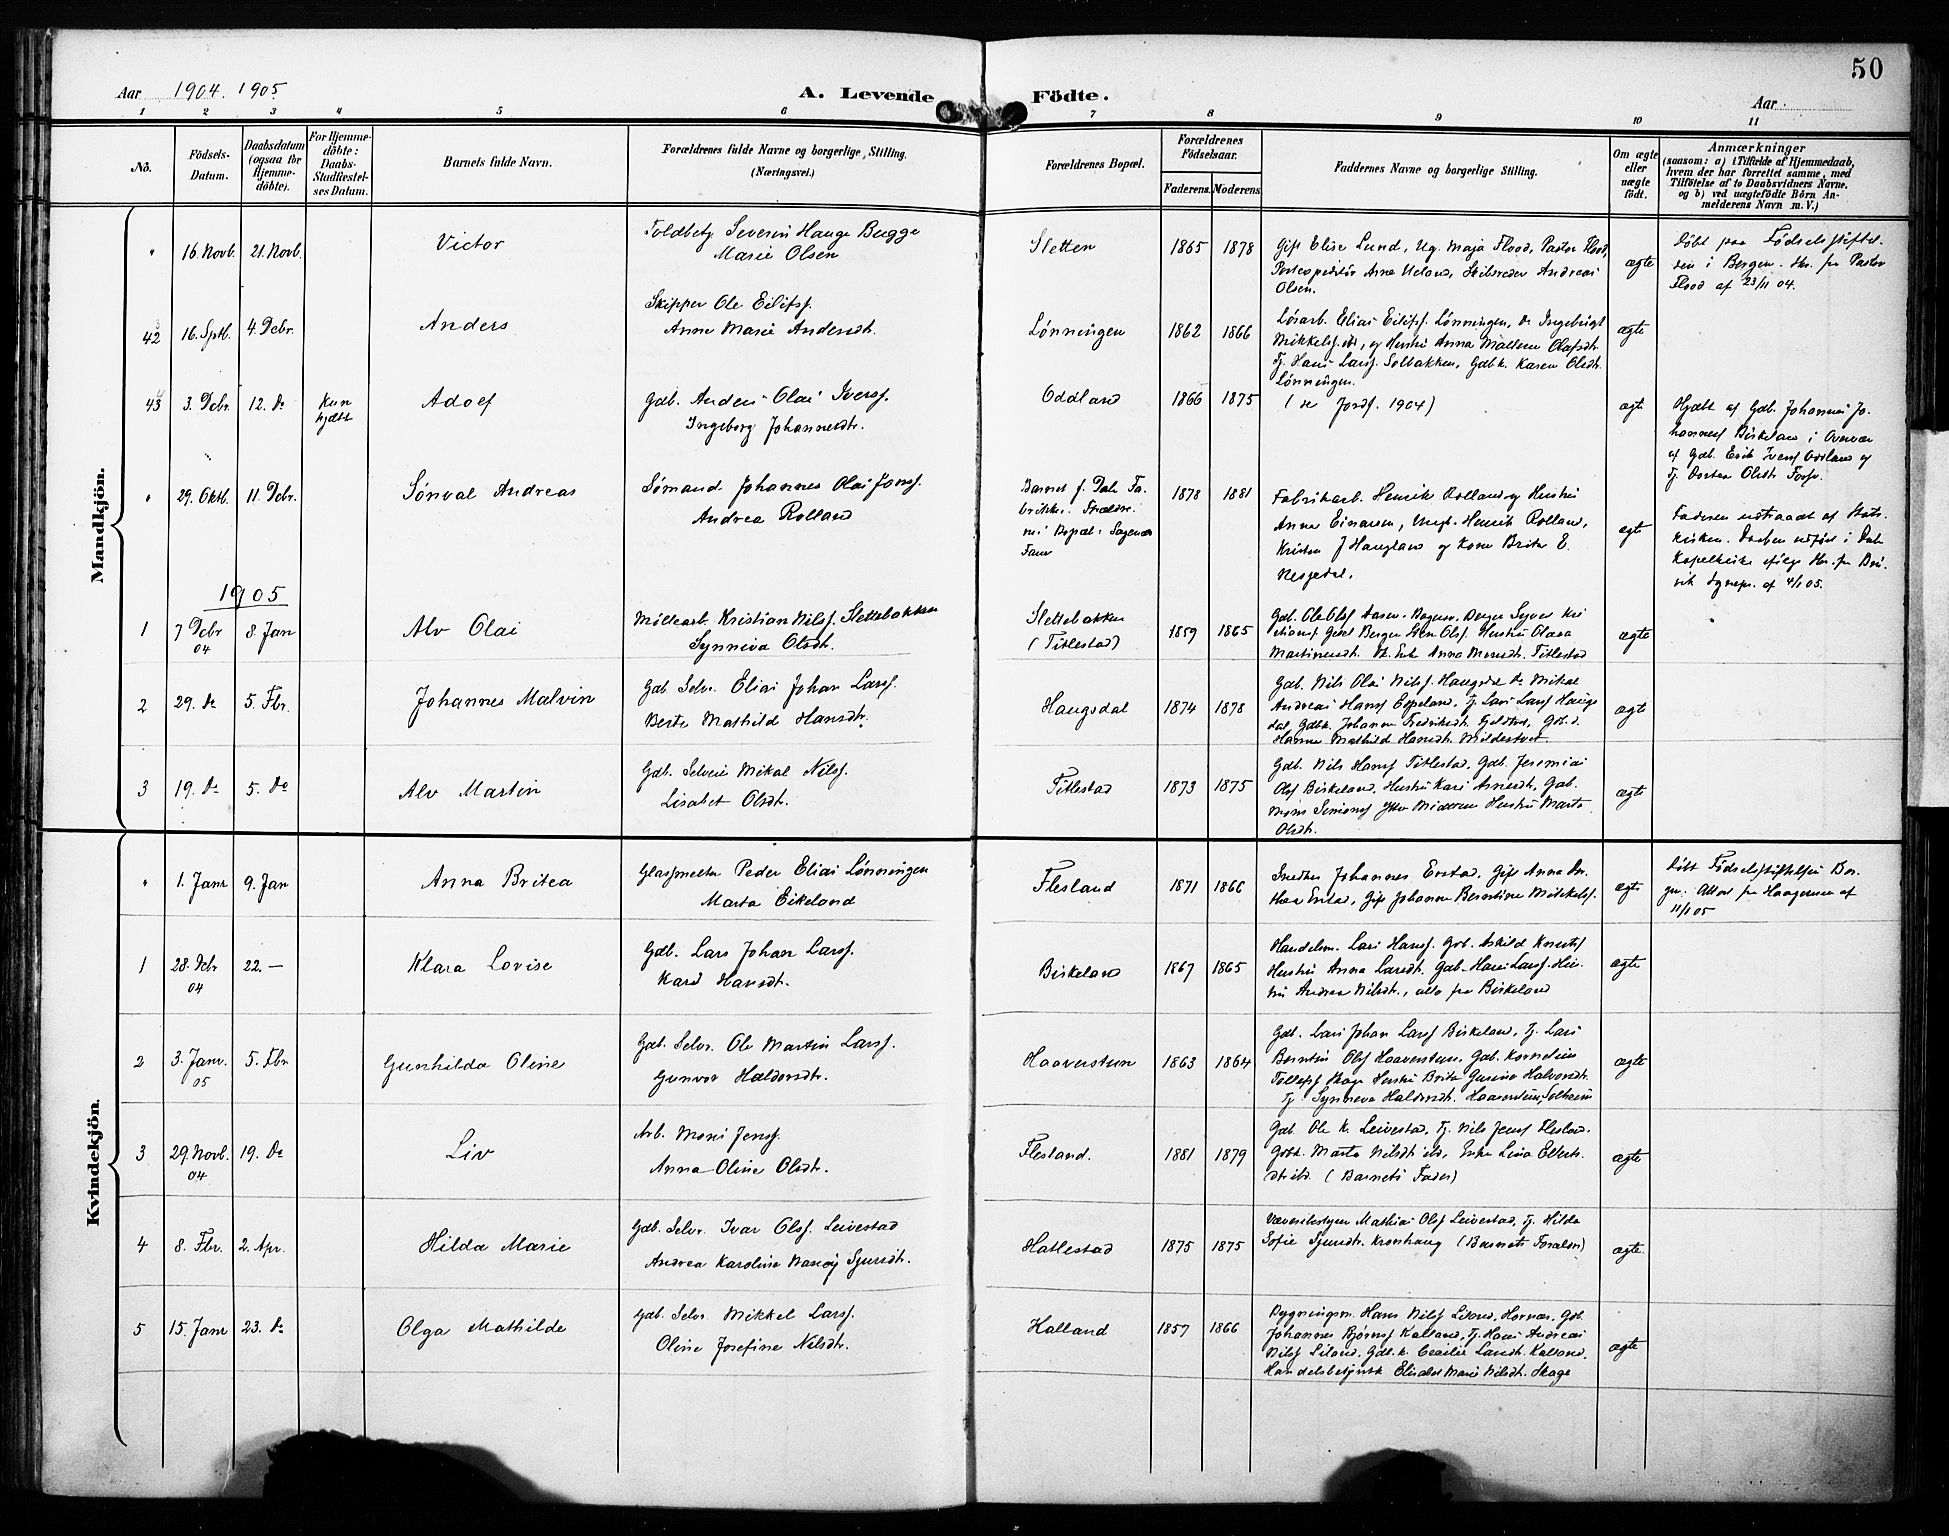 50
Aar 1904. 1905
A. Levende Födte.
Aar
1 2 3 4 5 6 7 8 9 10 11
Nô.
Födsels-
Datum.
Daabsdatum
(ogsaa for
Hjemme-
döbte).
For Hjemme-
döbte:
Daabs-
Stadfæstel-
ses Datum.
Barnets fulde Navn.
Forældrenes fulde Navne og borgerlige Stilling.
(Næringsvei.)
Forældrenes Bopæl.
Forældrenes
Födselsaar.
Faderens. Moderens.
Faddernes Navne og borgerlige Stilling.
Om ægte
eller
uægte
födt.
Anmærkninger
(saasom: a) i Tilfælde af Hjemmedaab,
hvem der har forrettet samme, med
Tilföielse af to Daabsvidners Navne,
og b) ved uægtefödte Börn An-
melderens Navn m. V.)
Mandkjön.
" 16. Novb. 21. Novb. Victor
Severin Hauge Bugge
Marie Olsen
Sletten 1865 1878
Gift Elise Lund, Ug. Maja Flood, Pastor Flood,
Skibsreder Andreas
Olsen.
ægte
Døbt paa Fødselsstiftel-
sen i Bergen. fra Pastor
Flood af 23/11 04.
42 16. Sptb. 4. Debr. Anders
Skipper Ole Eilifsf.
Anne Marie Andersdt.
Lønningen 1862 1866
Løsarb. Elias Eilifsf. Lønningen, Do Ingebrigt
Mikkelsf. ibd, og Hustru Anna Olafsdt.
Tj. Hans Larsf. Solbakken, Gdbk. Karen Olsdt.
Lønningen.
ægte
43 3. Debr. 12. Do Kun
hjdbt
Adolf
Gdb. Anders Olai Iversf.
Ingeborg Johannesdtr.
Oddland 1866 1875
(se Jordf. 1904)
ægte
Hjdbt af Gdb. Johannes Jo-
hannesf Birkeland i Overvær
af Gdb. Erik Iversf Oddland og
Tj. Olsdt.
" 29. Oktb. 11. Debr. Sønval Andreas
Sømand Johannes Olai Jonsf.
Andrea Rolland
Barnet f. Dale Fa-
brikker.
Bopæl:
1878 1881
Fabrikarb. Henrik Rolland og Hustru
Anna Einarsen, Ungk. Henrik Rolland,
Kristen J Haugland og Kone Brita E.
ægte
Faderen udtraadt af Stats-
kirken. Daaben udført i Dale
Kapelkirke
af 4/1 05.
1905
1 7 Debr
04
8. Jan Alv Olai
Møllearb. Kristian Nilsf. Slettebakken
Synneva Olsdt.
Slettebakken
(Titlestad)
1859 1865
Gdb. Ole Olsf
Hustru Olava
Martinusdt. Anna Monsdt. Titlestad
ægte
2 29. Do 5. Fbr. Johannes Malvin
Gdb. Selv. Elias Johan Larsf.
Berte Mathild Hansdt.
Haugsdal 1874 1878
Gdb. Nils Olai Nilsf. Haugsdal Do Mikal
Andreas Hansf Espeland, Tj. Lars Larsf Haugs-
dal, Gdbk. Johanne Fredriksdt.
Hanna Mathild Hansdt. Mildestvet.
ægte
3 19. Do 5. Do Alv Martin
Gdb. Selveier Mikal Nilsf.
Lisabet Olsdt.
Titlestad 1873 1875
Gdb. Nils Hansf Titlestad, Gdb. Jeremias
Olsf Birkeland, Hustru Kari Arnesdt, Gdb.
Mons Simonsf Hustru Marta
Olsdt.
ægte
Kvindekjön.
" 1. Janr 9. Jan Anna Britea
Glasmester Peder Elias Lønningen
Marta Eikeland
Flesland 1871 1866
Snedker Johannes Erstad, Gift Anna
Erstad, Gift Johanne Berntine Mikkelsf.
ægte
Døbt Fødselsstiftelsen Ber-
gen. Attest fra af
11/1 05
1 28. Debr
04
22. — Klara Lovise
Gdb. Lars Johan Larsf.
Kari Hansdt.
Birkeland 1867 1865
Handelsm. Lars Hansf. Gdb. Askild
Hustru Anna Larsdt, Gdb. Hans Larsf. Hus-
tru Andrea Nilsdt., alle fra Birkeland
ægte
2 3. Janr.
05
5. Fbr Gunhilda Oline
Gdb. Selv. Ole Martin Larsf.
Gunvor Haldorsdtr.
Haaverstun 1863 1864
Gdb. Lars Johan Larsf Birkeland, Tj. Lars
Berntin Olsf Haaverstun, Gdb. Kornelius
Tollefsf Skage Hustru Brita Gurine Halvorsdt.
Tj. Synneva Haldorsdt. Haaverstun,
ægte
3 29. Novb.
04
19. Do Liv
Arb. Mons Jensf.
Anna Oline Olsdt.
Flesland. 1881 1879
Gdb. Ole K. Leivestad, Tj. Nils Jensf Flesland.
Gdbk. Marta Nilsdt ibd, Enke Lina
dt ibd. (Barnets Fader)
ægte
4 8. Fbr. 2. Apr. Hilda Marie
Gdb. Selv. Ivar Olsf. Leivestad
Andrea Karoline Sjursdt.
Hatlestad 1875 1875
Mathias Olsf Leivestad, Tj. Hilda
Sofie Sjursdt. Kronhaug (Barnets Foræld.)
ægte
5 15. Janr 23. Do Olga Mathilde
Gdb. Selv. Mikkel Larsf.
Oline Josefine Nilsdt.
Halland 1857 1866
Bygningsm. Hans Nilsf Liland, Hornæs, Gdb.
Johannes Bjørnsf Kalland, Tj. Hans Andreas
Nilsf Liland, Gdb.k. Cecilie Larsdt. Kalland,
Handelsbetjent Marie Nilsdt. Skage
ægte